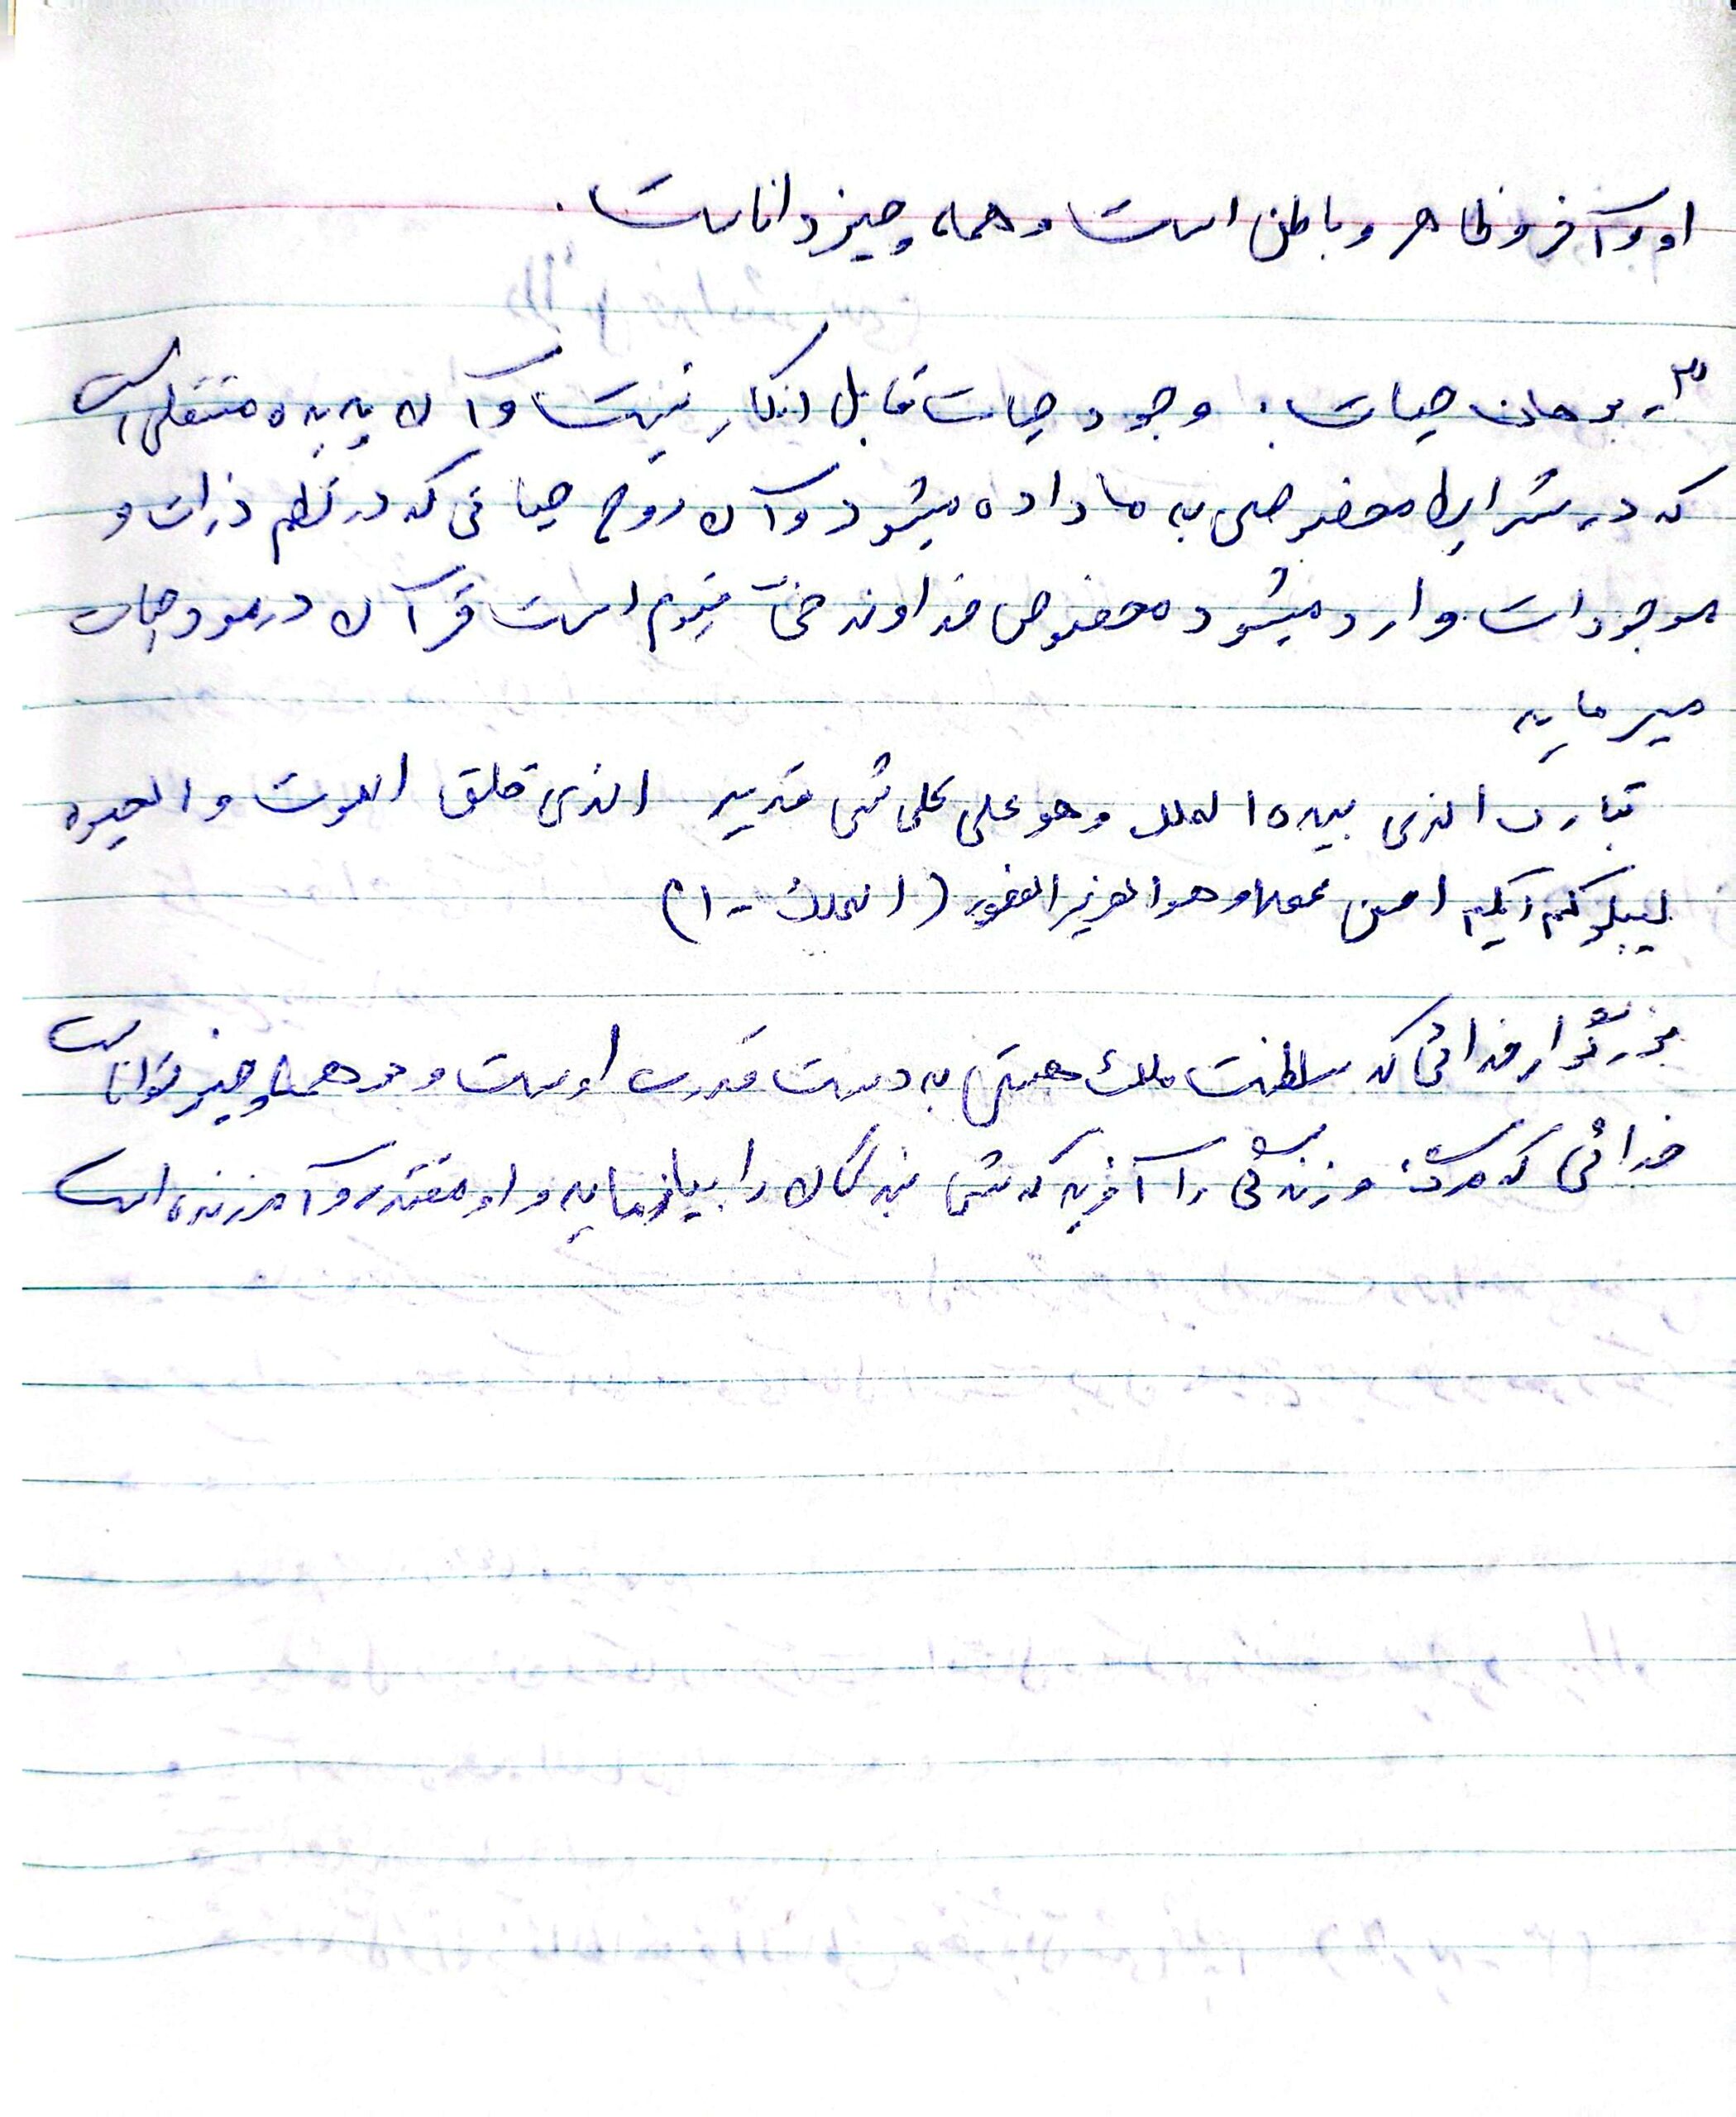 او و آخر و ظاهر و باطن است و همه چیز داناست.
۳- برهان حیات: وجود حیات قابل انکار نیست و آن پدیده مستقلی است
که در شرایط مخصوصی به ما داده میشود و آن روح حیاتی که در نظم ذرات و
موجودات وارد میشود مخصوص خداوند حیّ قیوم است قرآن در مورد حیات
میفرماید
تبارک الذی بیده الملک و هو علی کل شی قدیر الذی خلق الموت و الحیوه
لیبلوکم ایکم احسن عملا و هو العزیز الغفور (الملک - ۱)
بزرگوار خدائی که سلطنت ملک هستی به دست قدرت اوست و بر همه چیز تواناست
خدائی که مرگ و زندگی را آفرید که شما بندگان را بیازماید و او مقتدر و آمرزنده است